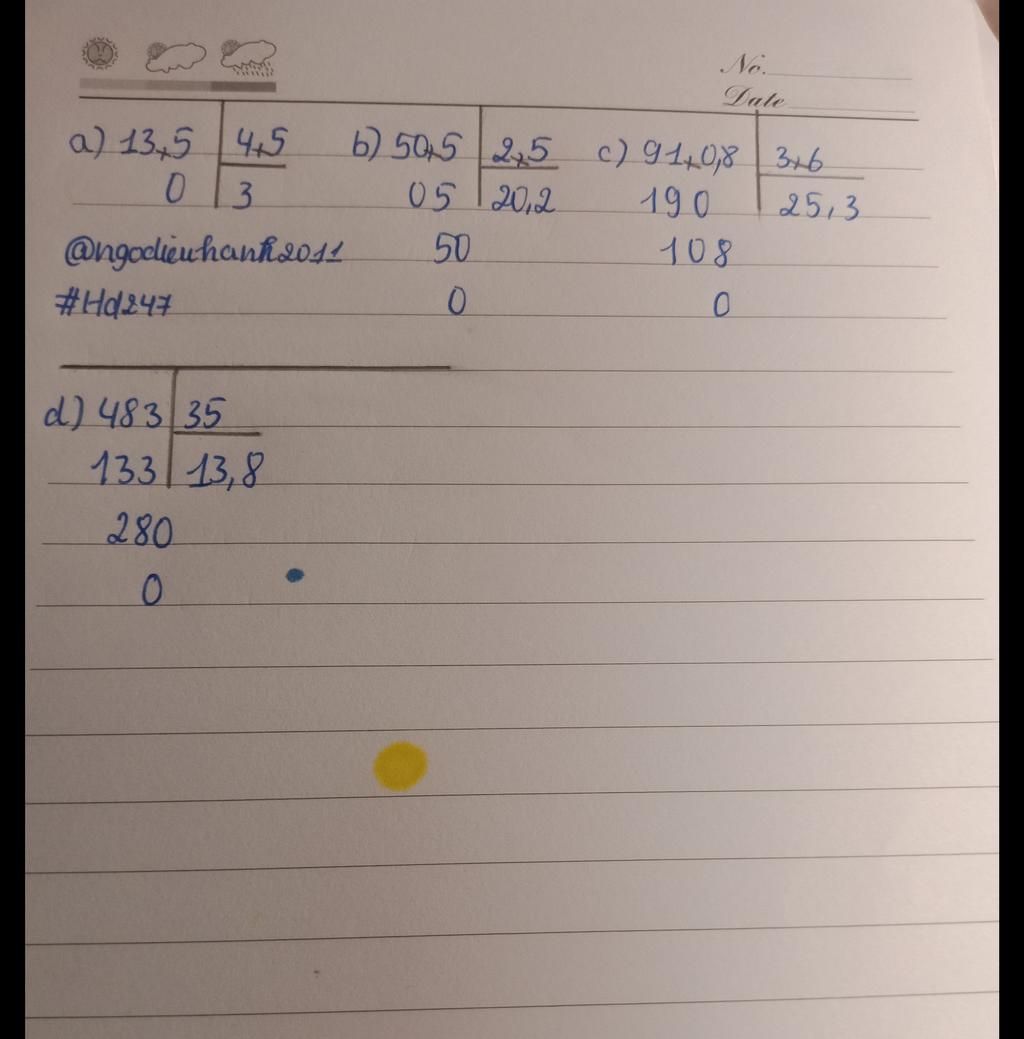 No.
Date
a) 13,5 4,5 b) 50,5 2,5 c) 91,0,8 3,6
0 3 05 20,2 190 25,3
@ngodieuhanh2011 50 108
#Hd247 0 0
d) 483 35
133 13,8
280
0